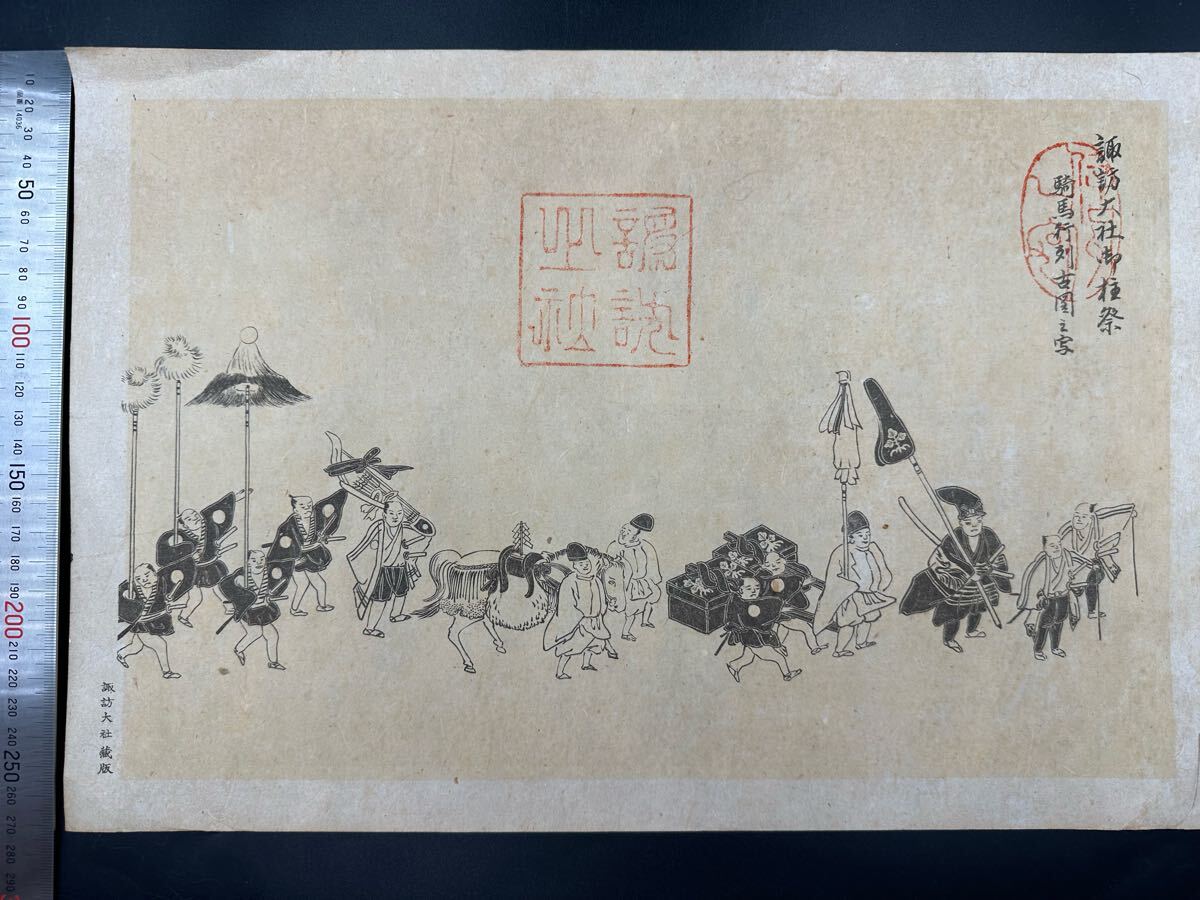 諏訪大社御柱祭
騎馬行列古図之写
諏訪大社蔵版
10
20
30
40
50
60
70
80
90
100
110
120
130
140
150
160
170
180
190
200
210
220
230
240
250
260
270
280
290
品番 14036